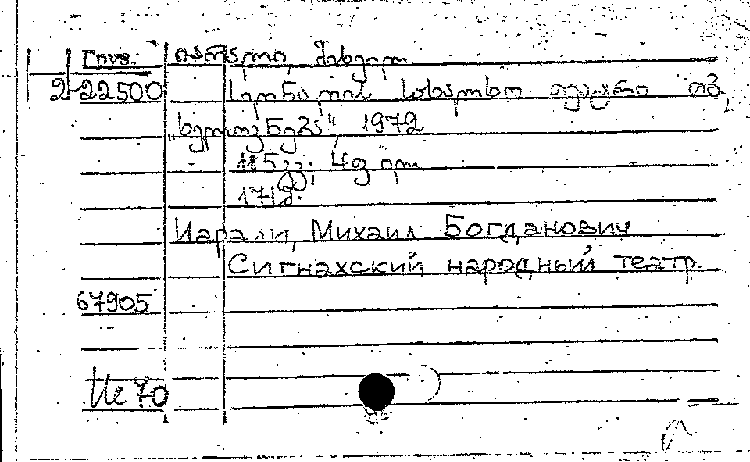 იარალი, მიხეილ
2 22500 სიღნაღის სახალხო თეატრი თბ,
„ხელოვნება“, 1972
115 გვ; 49 ილ
Иарали, Михаил Богданович
Сигнахский народный театр.
67905
Ис 70